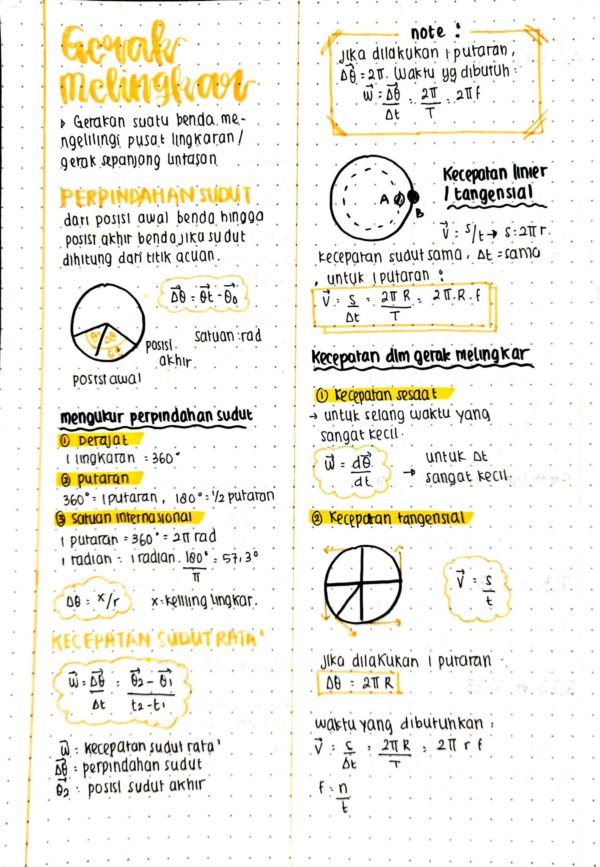 Gerak
Melingkar
▸ Gerakan suatu benda me-
ngelilingi pusat lingkaran /
gerak sepanjang lintasan
PERPINDAHAN SUDUT
dari posisi awal benda hingga
posisi akhir benda jika sudut
dihitung dari titik acuan.
Δθ⃗ = θ⃗t - θ⃗0
satuan : rad
posisi
akhir
posisi awal
mengukur perpindahan sudut
① Derajat
1 lingkaran = 360°
② putaran
360° = 1 putaran, 180° = 1/2 putaran
③ Satuan internasional
1 putaran = 360° = 2π rad
1 radian = 1 radian . 180°/π = 57,3°
Δθ = x/r
x = keliling lingkar.
KECEPATAN SUDUT RATA²
ω⃗ = Δθ⃗/Δt = θ⃗2 - θ⃗1/t2 - t1
ω⃗ : kecepatan sudut rata²
Δθ⃗ : perpindahan sudut
θ⃗2 : posisi sudut akhir
note :
Jika dilakukan 1 putaran,
Δθ⃗ = 2π. Waktu yg dibutuh :
ω⃗ = Δθ⃗/Δt = 2π/T = 2πf
A
B
Kecepatan linier
/ tangensial
V⃗ = s/t → s = 2πr.
Kecepatan sudut sama, Δt = sama
, untuk 1 putaran :
V⃗ = s/Δt = 2πR/T = 2π.R.f
Kecepatan dlm gerak melingkar
① Kecepatan sesaat
→ untuk selang waktu yang
sangat kecil.
ω⃗ = dθ⃗/dt
→ untuk Δt
sangat kecil
② Kecepatan tangensial
V⃗ = s/t
Jika dilakukan 1 putaran
Δθ = 2πR
waktu yang dibutuhkan,
V⃗ = s/Δt = 2πR/T = 2πrf
f = n/t